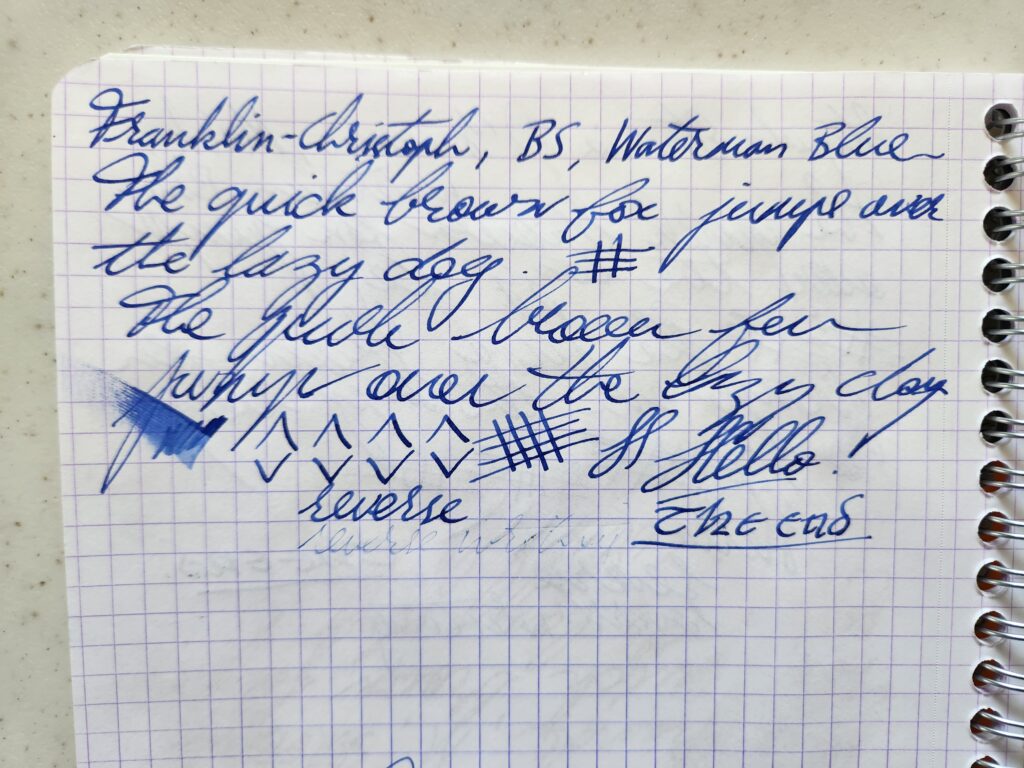 Franklin-Christoph, BS, Waterman Blue
The quick brown fox jumps over
the lazy dog. #
The quick brown fox
jumps over the lazy dog
Hello!
reverse
reverse writing
The end